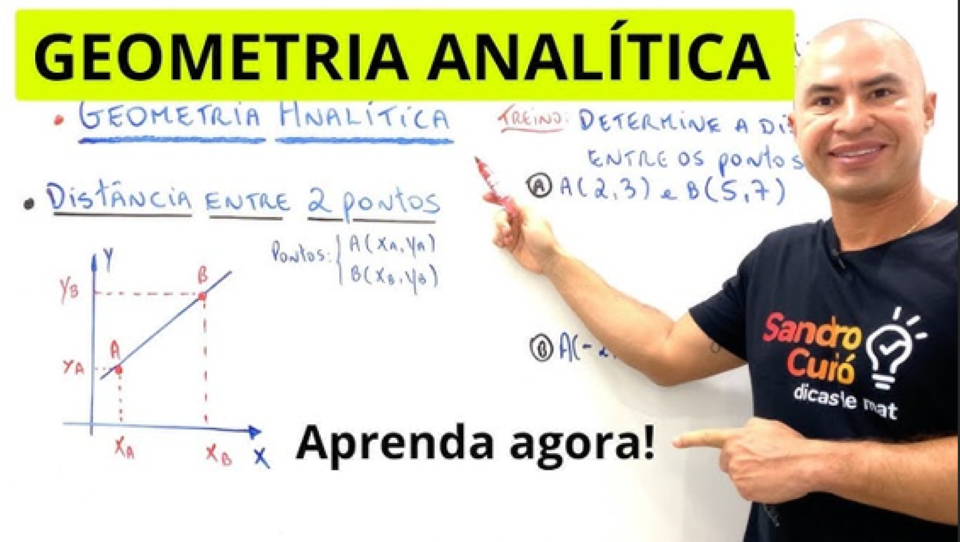 GEOMETRIA ANALÍTICA
• GEOMETRIA ANALÍTICA
• DISTÂNCIA ENTRE 2 PONTOS
PONTOS: A(XA, YA)
B(XB, YB)
Y
YB
B
A
YA
XA
XB
X
TREINO: DETERMINE A DI
ENTRE OS PONTOS
A A(2,3) e B(5,7)
B A(-2,
Aprenda agora!
Sandro
Curió
dicasde mat